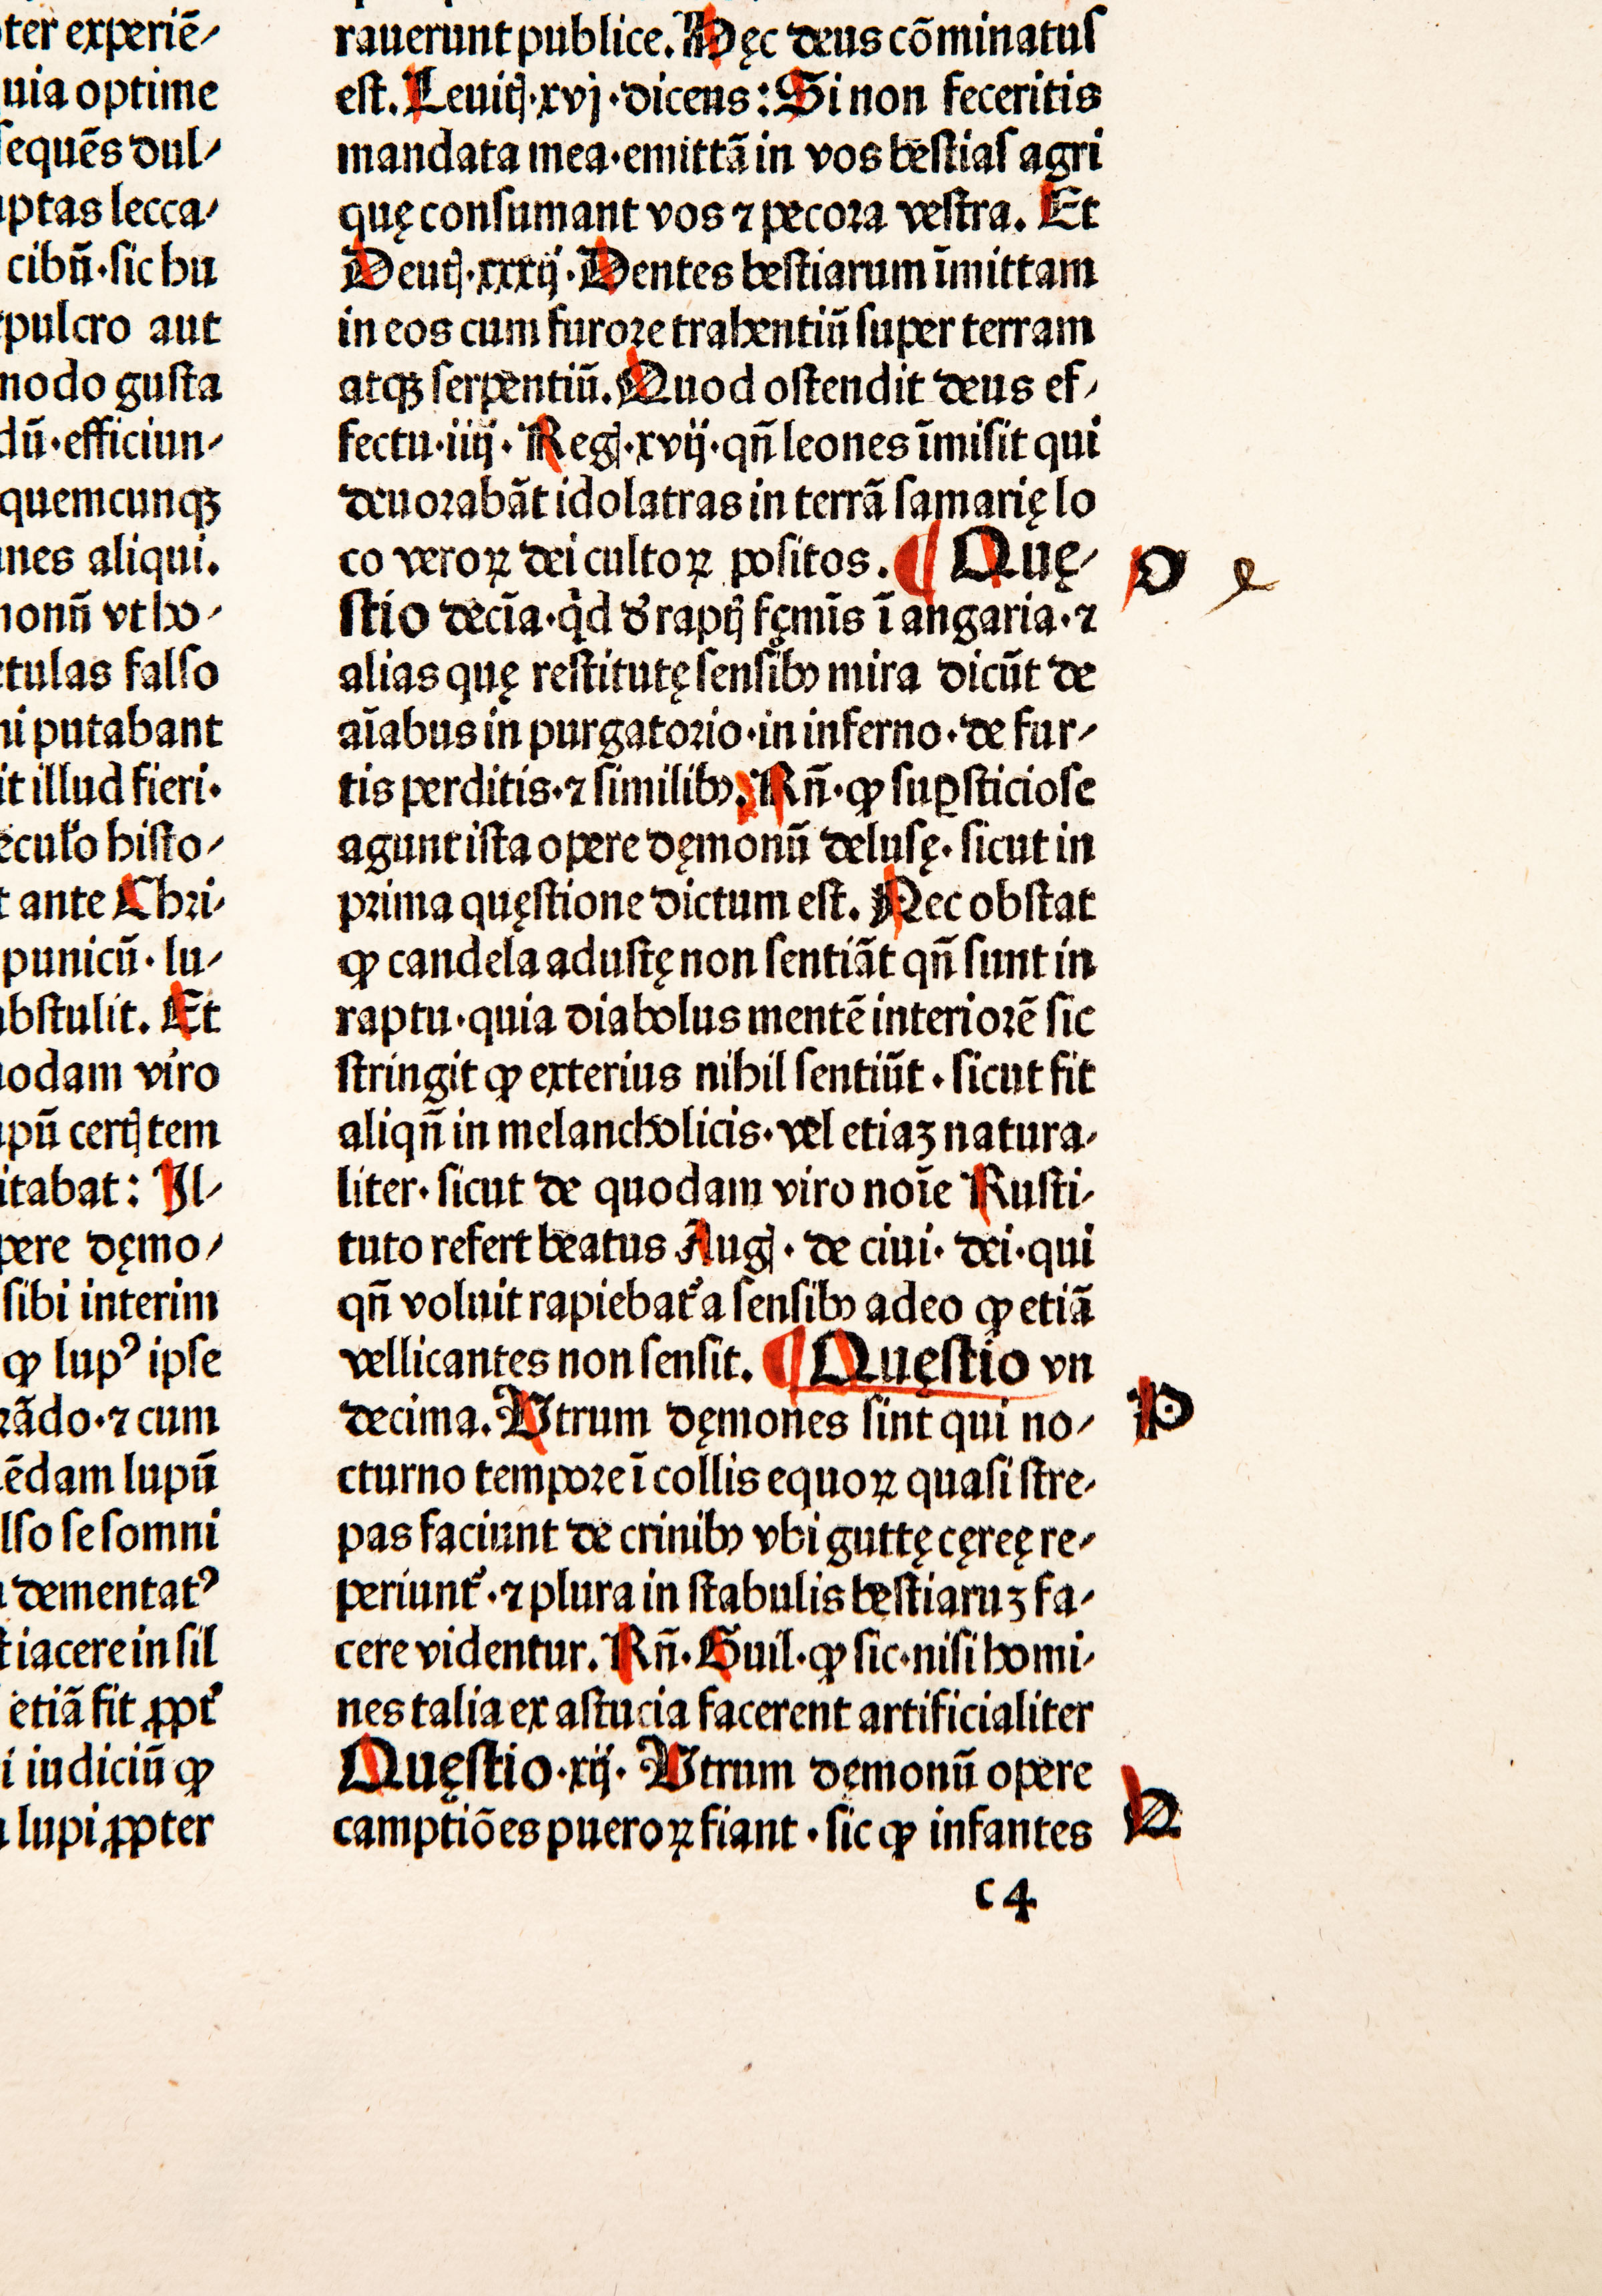 ter experiē⸗
uia optime
ſequēs dul⸗
ptas lecca⸗
cibū·ſic hu
pulcro aut
modo guſta
dū·efficiun⸗
quemcunqꝫ
nes aliqui.
monū vt ho⸗
tulas falſo
ni putabant
it illud fieri·
eculo hiſto⸗
t ante Chri⸗
punicū·lu⸗
bſtulit. Et
uodam viro
upū certꝭ tem
itabat: Il⸗
pere dęmo⸗
ſibi interim
ꝙ lupꝰ ipſe
rādo·⁊ cum
ēdam lupū
lſo ſe ſomni
dementatꝰ
t iacere in ſil
etiā fit ꝓpt᷑
i iudiciū ꝙ
lupi ꝓpter
rauerunt publice. Hęc deus cōminatuſ
eſt. Leuitꝭ·xvj·dicens: Si non feceritis
mandata mea·emittā in vos beſtiaſ agri
quę conſumant vos ⁊ pecora veſtra. Et
Deutꝭ·xxxij·Dentes beſtiarum īmittam
in eos cum furore trahentiū ſuper terram
atqꝫ ſerpentiū. Quod oſtendit deus ef⸗
fectu·iiij·Regꝭ·xvij·qn̄ leones īmiſit qui
deuorabāt idolatras in terrā ſamarię lo
co veroꝝ dei cultoꝝ poſitos. ¶ Quę⸗
ſtio decīa·qͥd đ raptꝭ fęmīs ī angaria·⁊
alias quę reſtitutę ſenſibꝰ mira dicūt de
aīabus in purgatorio·in inferno·de fur⸗
tis perditis·⁊ ſimilibꝰ. Rn̄·ꝙ ſuꝑſticioſe
agunt iſta opere dęmonū deluſę·ſicut in
prima quęſtione dictum eſt. Nec obſtat
ꝙ candela aduſtę non ſentiāt qn̄ ſunt in
raptu·quia diabolus mentē interiorē ſic
ſtringit ꝙ exterius nihil ſentiūt·ſicut fit
aliqn̄ in melancholicis·vel etiaꝫ natura⸗
liter·ſicut de quodam viro noīe Ruſti⸗
tuto refert beatus Augꝭ·de ciui·dei·qui
qn̄ voluit rapiebat᷑ a ſenſibꝰ adeo ꝙ etiā
vellicantes non ſenſit. ¶ Quęſtio vn
decima. Vtrum dęmones ſint qui no⸗
cturno tempore ī collis equoꝝ quaſi ſtre⸗
pas faciunt de crinibꝰ vbi guttę cęreę re⸗
periunt᷑·⁊ plura in ſtabulis beſtiaruꝫ fa⸗
cere videntur. Rn̄·Guil·ꝙ ſic·niſi homi⸗
nes talia ex aſtucia facerent artificialiter
Quęſtio·xij·Vtrum dęmonū opere
camptiōes pueroꝝ fiant·ſic ꝙ infantes
O
P
Q
c 4